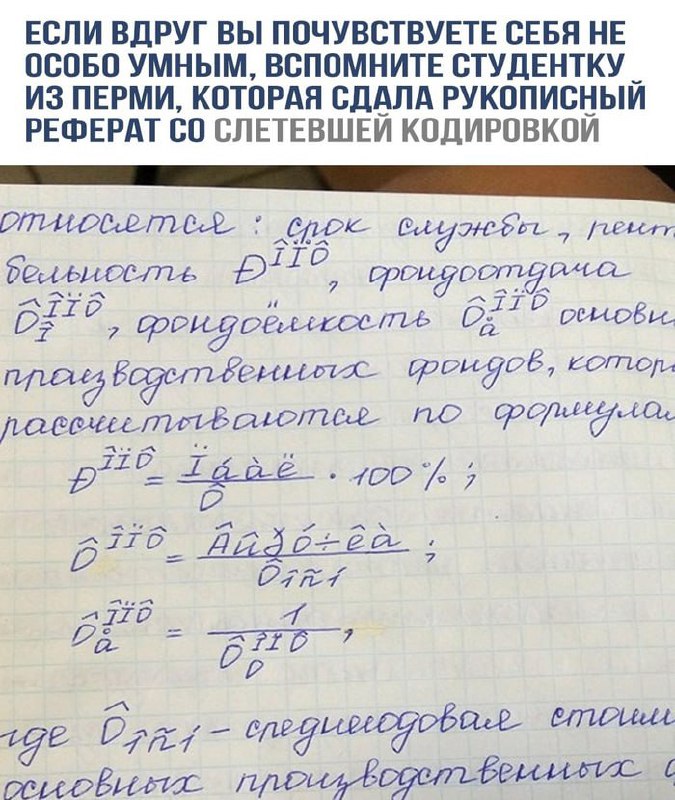 ЕСЛИ ВДРУГ ВЫ ПОЧУВСТВУЕТЕ СЕБЯ НЕ
ОСОБО УМНЫМ, ВСПОМНИТЕ СТУДЕНТКУ
ИЗ ПЕРМИ, КОТОРАЯ СДАЛА РУКОПИСНЫЙ
РЕФЕРАТ СО СЛЕТЕВШЕЙ КОДИРОВКОЙ
относятся: срок службы, рент
бельность Ð ÎÏÔ, фондоотдача
Ô ÎÏÔ Î, фондоёмкость Ô ÎÏÔ å основн
производственных фондов, котор
рассчитываются по формулам
Ð ÎÏÔ = Ïáàë / Ô · 100 %;
Ô ÎÏÔ = Âûðó÷êà / Ôîñí;
Ô ÎÏÔ å = 1 / Ô ÎÏÔ О,
где Ôîñí – среднегодовая стоим
основных производственных ф